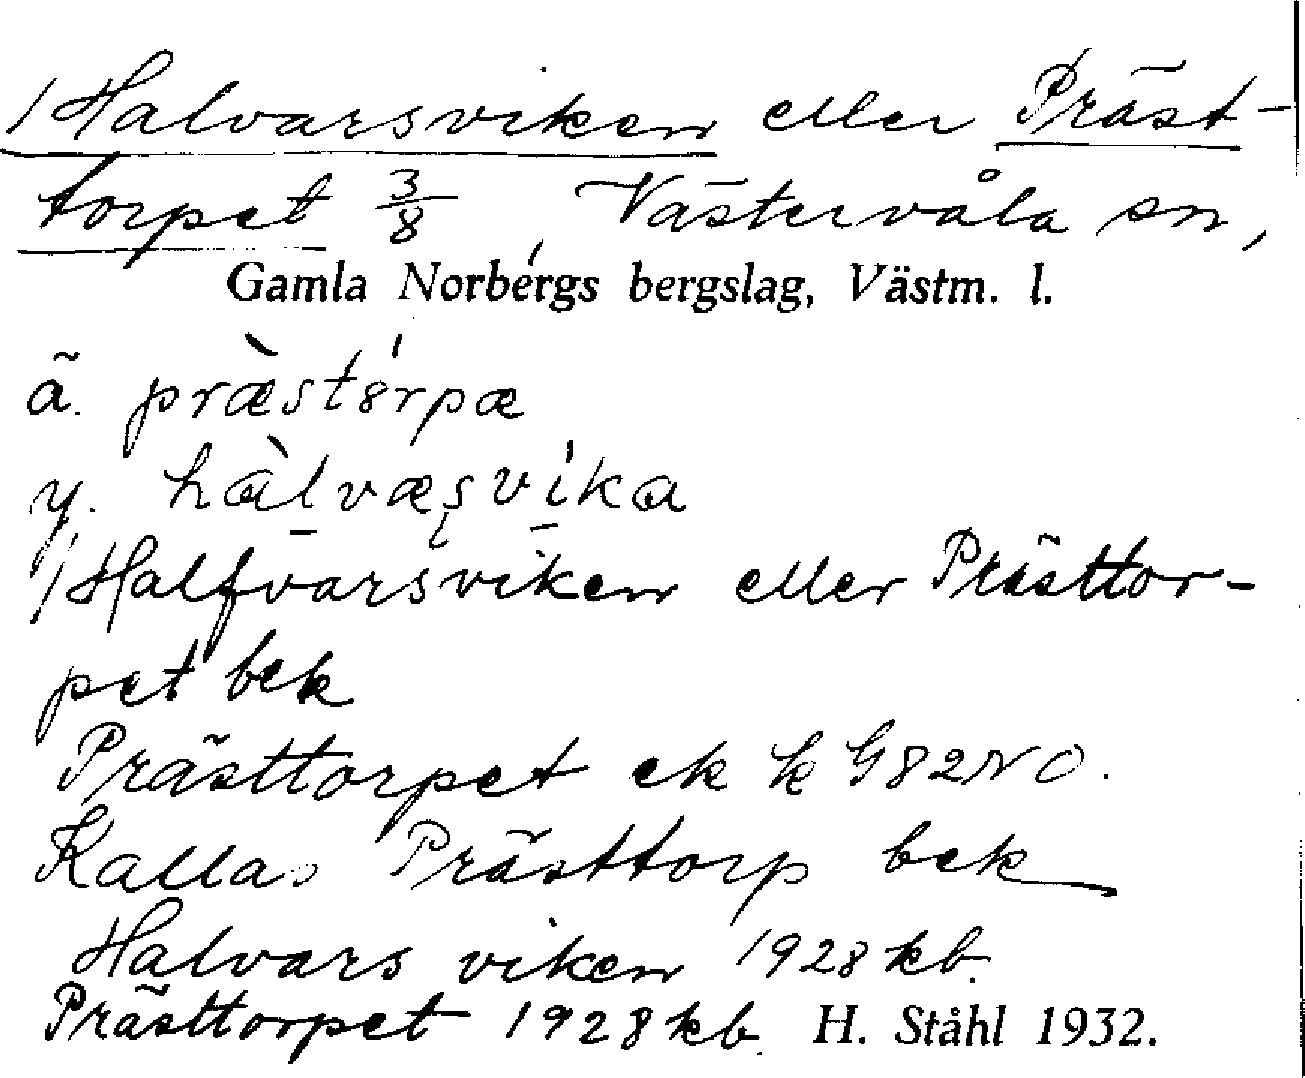 1 Halvarsviken eller Präst-
torpet 3/8, Västervåla sn,
Gamla Norbergs bergslag, Västm. l.
ã. præ̀stɵ́rpæ
y. hàlvæʂvíka
1 Halfvarsviken eller Prästtor-
pet bek
Prästtorpet ek k G82NO.
Kallas Prästtorp bek
Halvars viken 1928 kb.
Prästtorpet 1928 kb. H. Ståhl 1932.